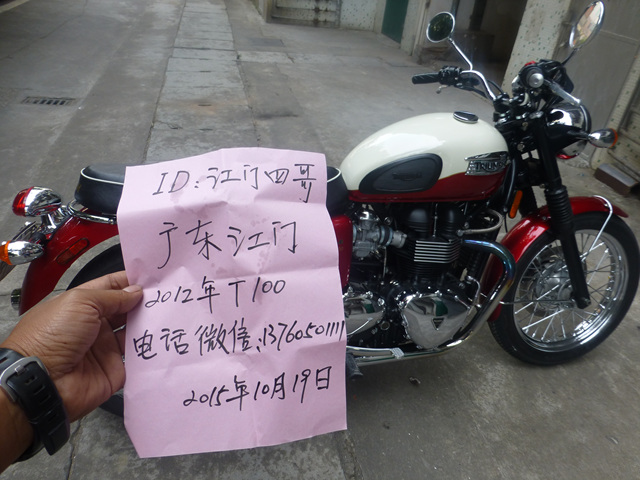 ID:江门四哥
广东江门
2012年T100
电话微信:13760501111
2015年10月19日
TRIUMPH